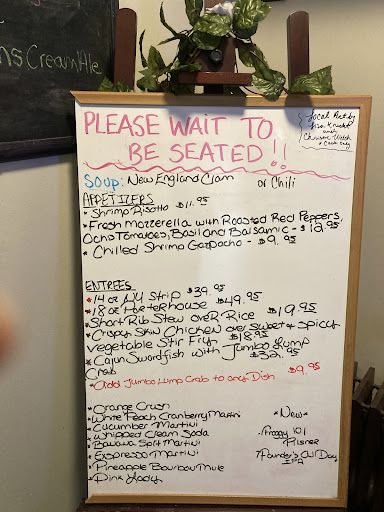 ns Cream Ale
Local Art by
Lisa
and
Christine Welsh
Cash only
PLEASE WAIT TO
BE SEATED!!
SOUP: New England Clam or Chili
APPETIZERS
* Shrimp Risotto $11.95
* Fresh Mozzerella with Roasted Red Peppers,
Ocho Tomatoes, Basil and Balsamic - $12.95
* Chilled Shrimp Gazpacho - $9.95
ENTREES
* 14 oz NY Strip $39.95
* 18 oz Porterhouse $49.95
* Short Rib Stew over Rice $19.95
* Crispy Skin Chicken over sweet & spicy
vegetable Stir Fry $18.95
* Cajun Swordfish with Jumbo Lump
Crab $32.95
* Add Jumbo Lump Crab to any Dish $9.95
* Orange Crush
* White Peach Cranberry Martini
* Cucumber Martini
* Whipped Cream Soda
* Banana Split Martini
* Espresso Martini
* Pineapple Bourbon Mule
* Pink Lady
* New *
Froggy 101
Pilsner
Founder's All Day
IPA